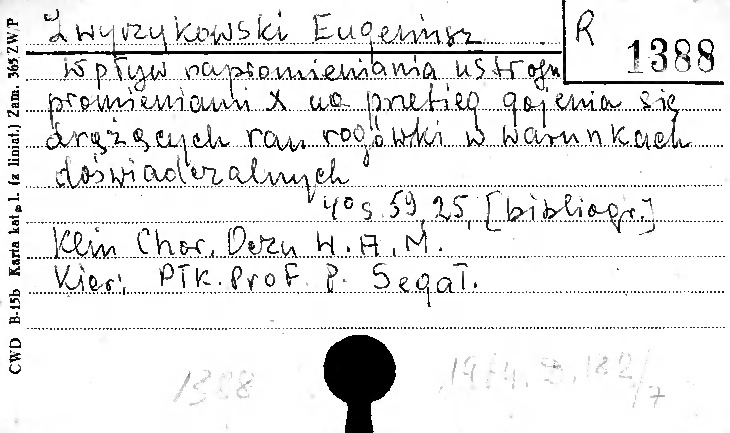 Zwyrzykowski Eugeniusz
R 1388
Wpływ napromieniania ustroju
promieniami X na przebieg gojenia się
drążących ran rogówki w warunkach
doświadczalnych
4° s. 59, 25, [bibliogr.]
Klin Chor. Oczu W.A.M.
Kier: Płk. Prof. P. Segał.
CWD B-15b Karta kat. l. (z liniat.) Zam. 365 ZW/P
1388